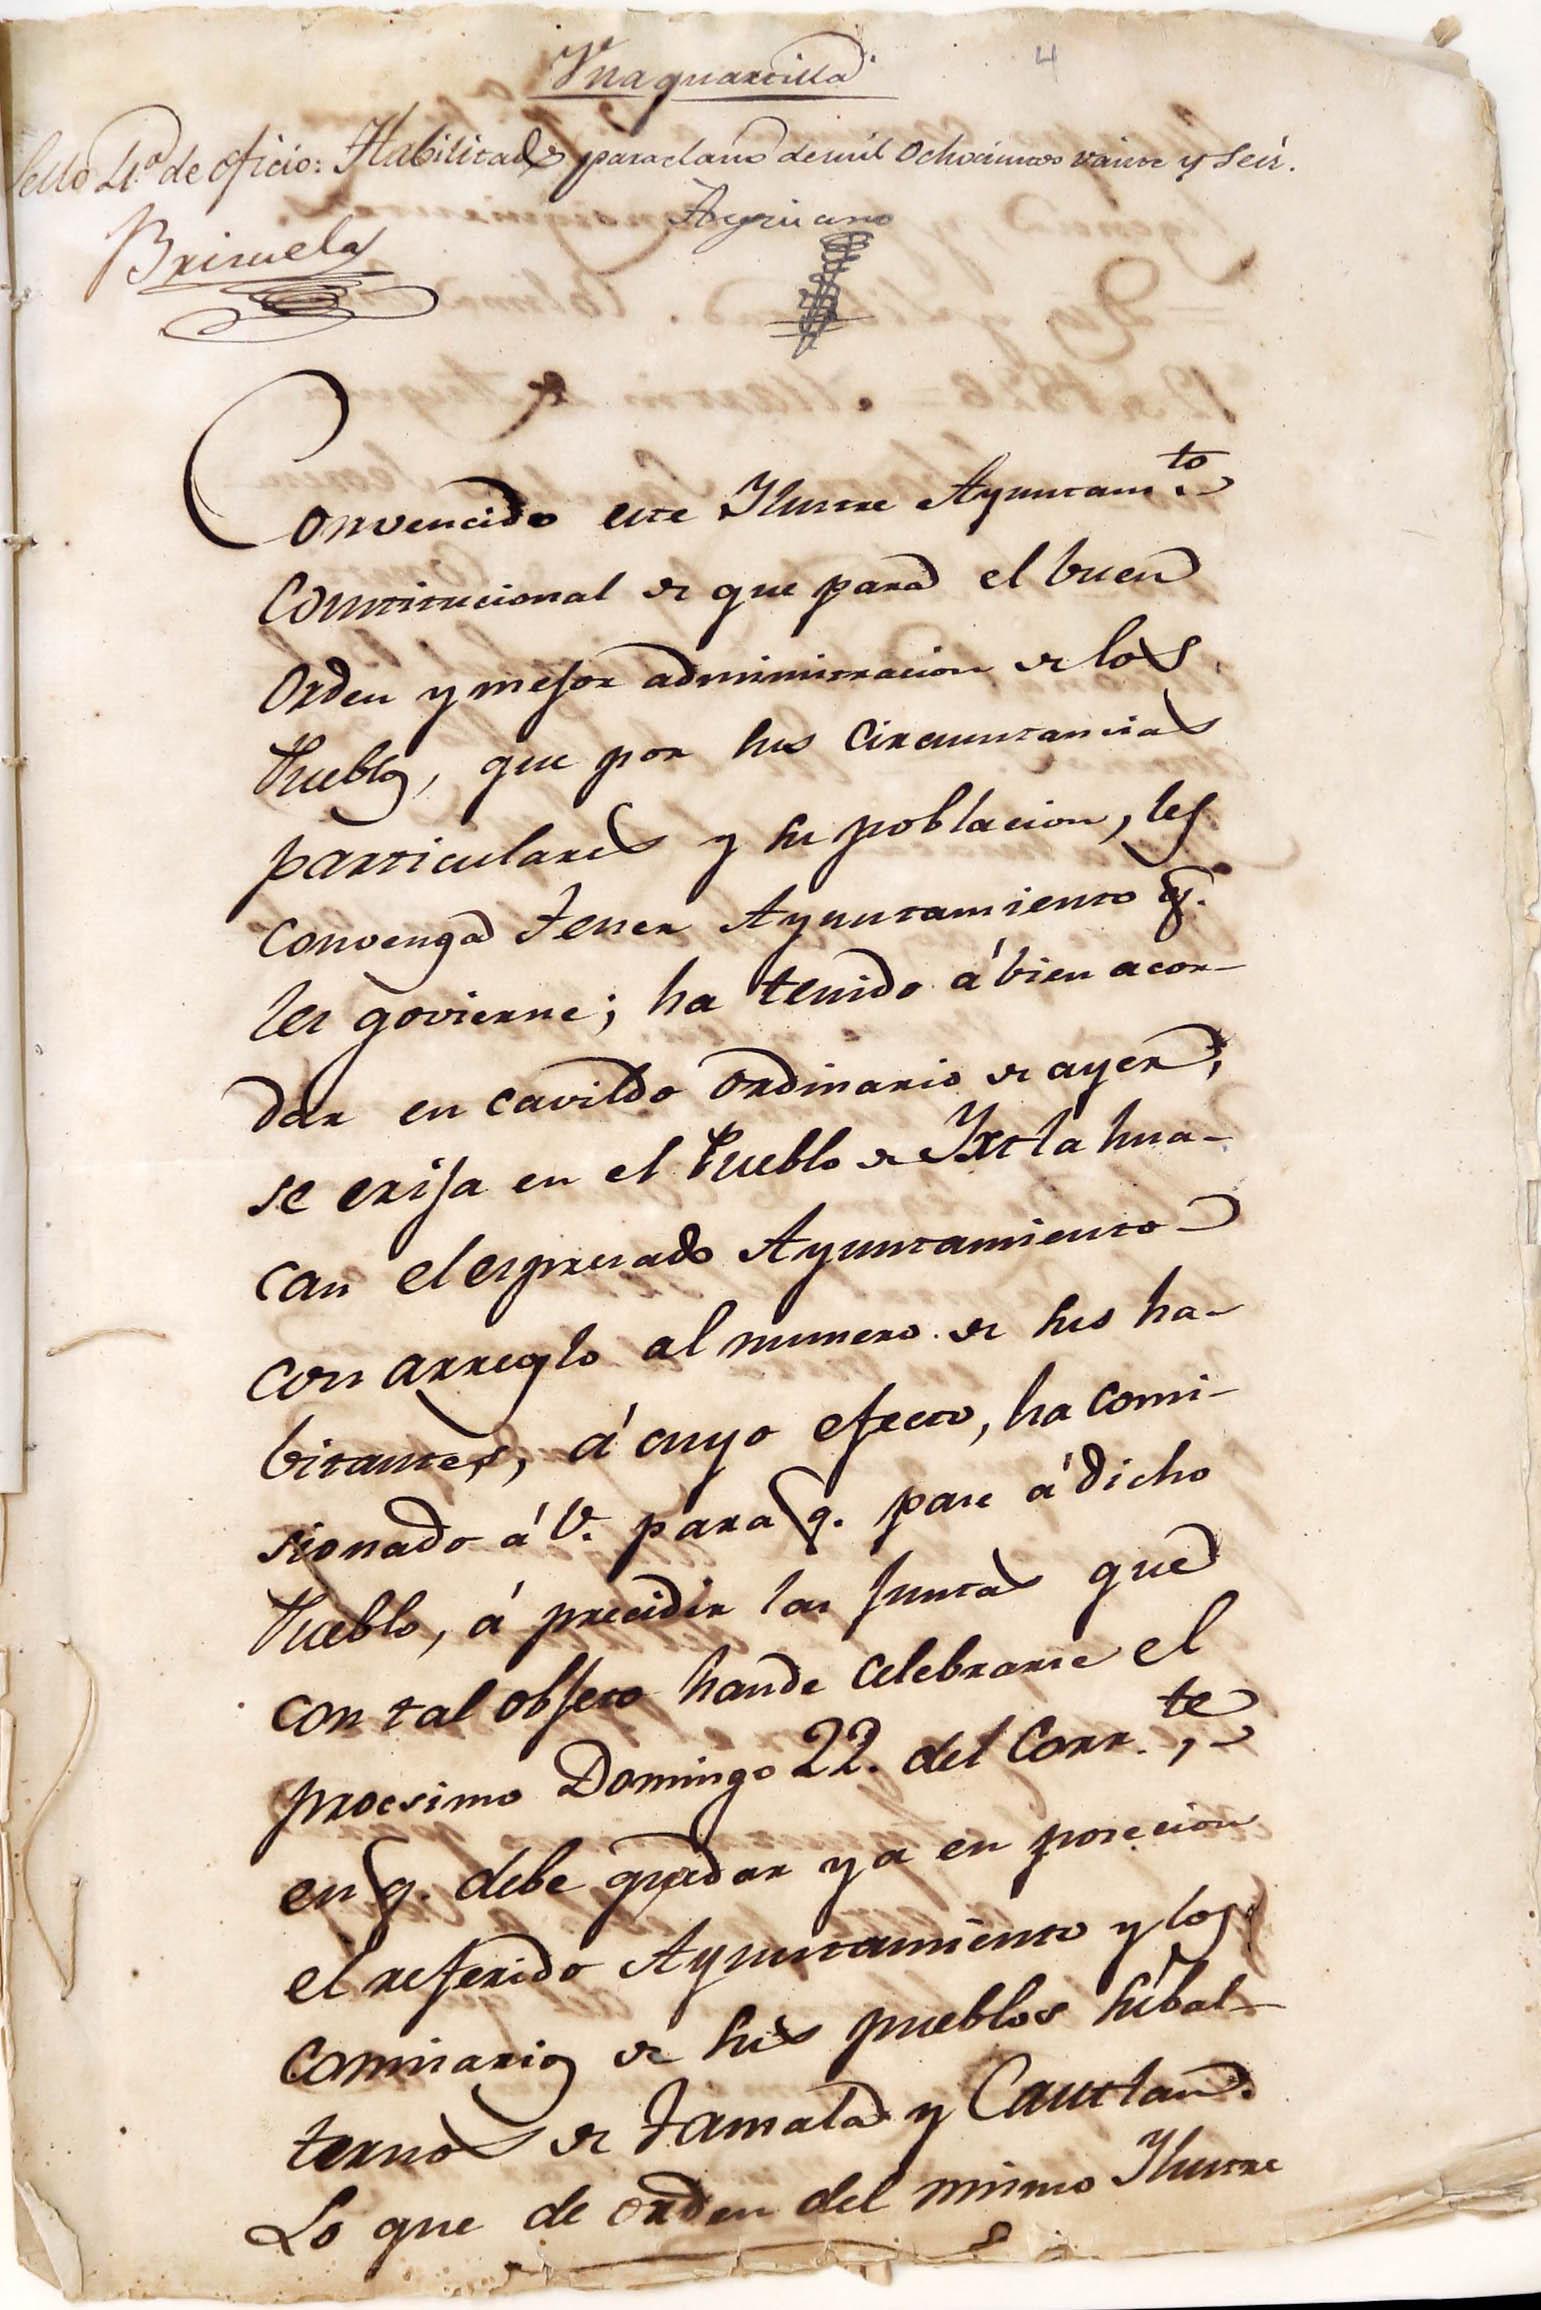 Una quartilla.
4
Sello 4.º de oficio: Habilitado para el año de mil ochocientos veinte y seis.
Brisuela
Anguiano
Convencido este Ylustre Ayuntam.to
Constitucional de que para el buen
orden y mejor administracion de los
Pueblos, que por sus circunstancias
particulares y su poblacion, les
convenga tener Ayuntamiento q.
les govierne; ha tenido á bien acor-
dar en cavildo ordinario de ayer,
se erija en el Pueblo de Yxtlahua-
can el espresado Ayuntamiento
con arreglo al numero de sus ha-
bitantes, á cuyo efecto, ha comi-
sionado á V. para q. pase á dicho
Pueblo, á precidir las juntas que
con tal objeto hande celebrarse el
procsimo Domingo 22. del Corr.te,
en q. debe quedar ya en posecion
el referido Ayuntamiento y los
comisarios de sus pueblos subal-
ternos de Tamala y Cautlan.
Lo que de orden del mismo Ylustre